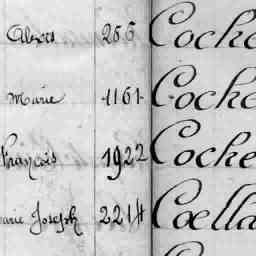 Alexis 266 Cocke
Marie 1161 Cocke
François 1922 Cocke
arie Joseph 2214 Coella